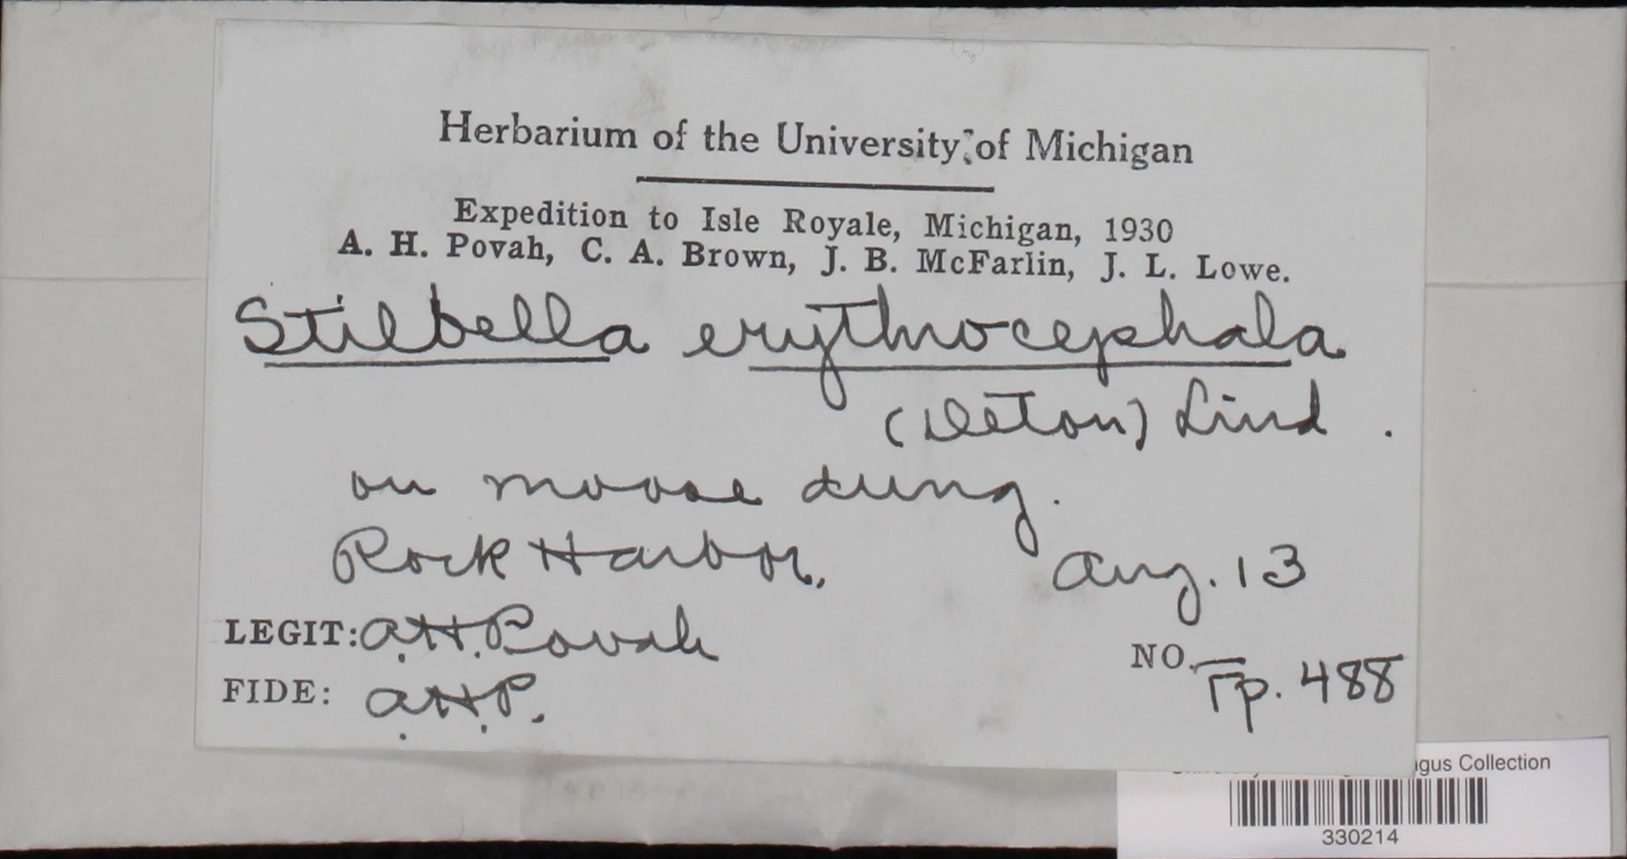 Herbarium of the University of Michigan
Expedition to Isle Royale, Michigan, 1930
A. H. Povah, C. A. Brown, J. B. McFarlin, J. L. Lowe.
Stilbella erythrocephala
(Deton) Lind.
on moose dung.
Rock Harbor. Aug. 13
LEGIT: A.H. Povah
FIDE: A.H.P. NO. Fp. 488
ngus Collection
330214